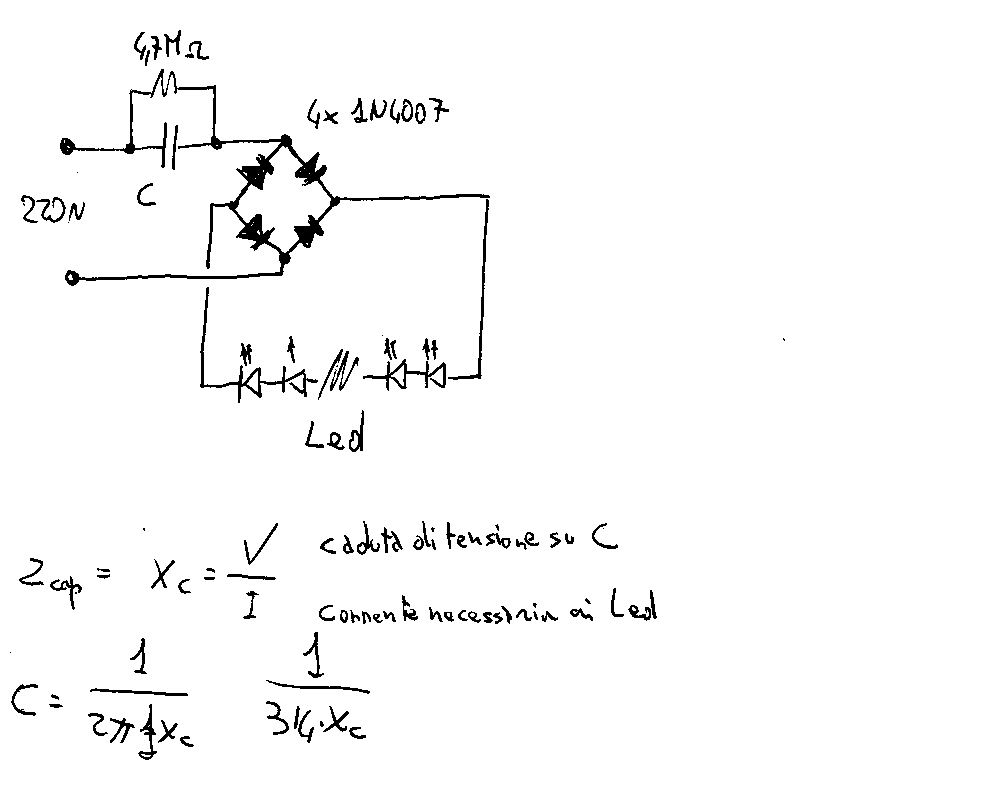 4,7MΩ
4x 1N4007
C
220V
Led
Zcap = Xc = V / I
caduta di tensione su C
corrente necessaria ai Led
C = 1 / 2πfXc 1 / 314·Xc